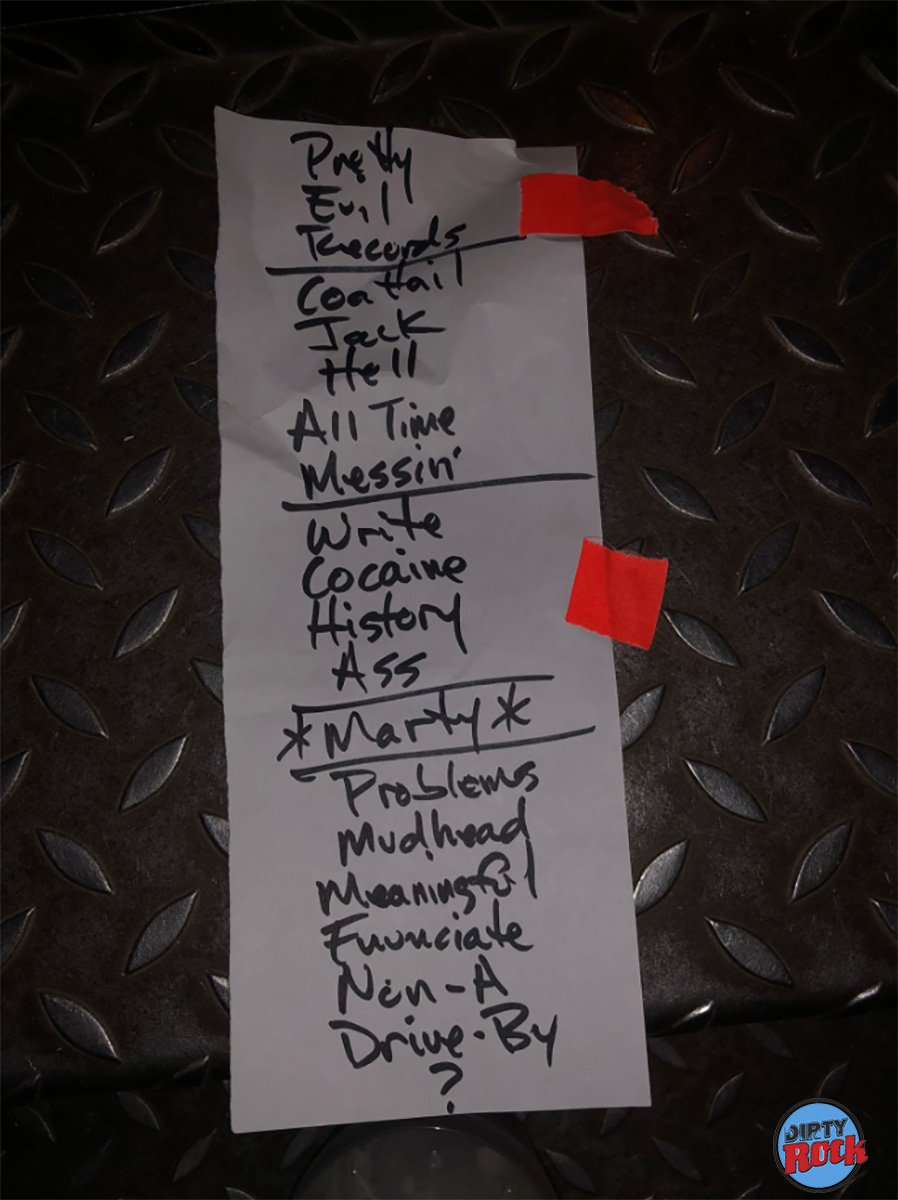 Pretty
Evil
Records
Coattail
Jack
Hell
All Time
Messin'
Write
Cocaine
History
Ass
*Marty*
Problems
Mudhead
Meaningful
Enunciate
Non-A
Drive-By
?
DIRTY
Rock